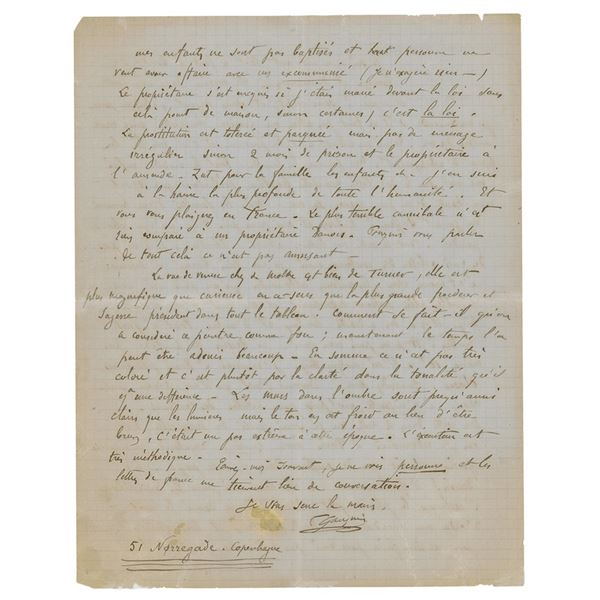 mes enfants ne sont pas baptisés et tout personne ne
veut avoir affaire avec un excommunié (Je n'exagère rien -)
Le propriétaire s'est enquis si j'étais marié devant la loi sans
celà point de maison, sinon costumes) c'est la loi.
La prostitution est tolérée et parquée mais pas de ménage
irrégulier sinon 2 mois de prison et le propriétaire à
l'amende. Zut pour la famille les enfants etc J'en suis
à la haine la plus profonde de toute l'humanité. Et
vous vous plaignez en France. Le plus terrible cannibale n'est
rien comparé à un propriétaire Danois. vous parler
de tout celà ce n'est pas amusant -
La vue de Venise chez de est bien de Turner, elle est
plus magnifique que curieuse en ce sens que la plus grande froideur et
sagesse président dans tout le tableau. Comment se fait-il qu'on
a considéré ce peintre comme fou; maintenant le temps l'a
peut être adouci beaucoup - En somme ce n'est pas très
coloré et c'est plutôt par la clarté dans la tonalité qu'il
y a une différence - Les murs dans l'ombre sont presqu'aussi
clairs que les lumières mais le ton en est froid au lieu d'être
brun, c'était un pas extrême à cette époque. L'exécution est
très méthodique. Ecrivez-moi souvent, je ne vois personne et les
lettres de france me tiennent lieu de conversation.
Je vous serre la main.
Gauguin
51 Norregade. Copenhague